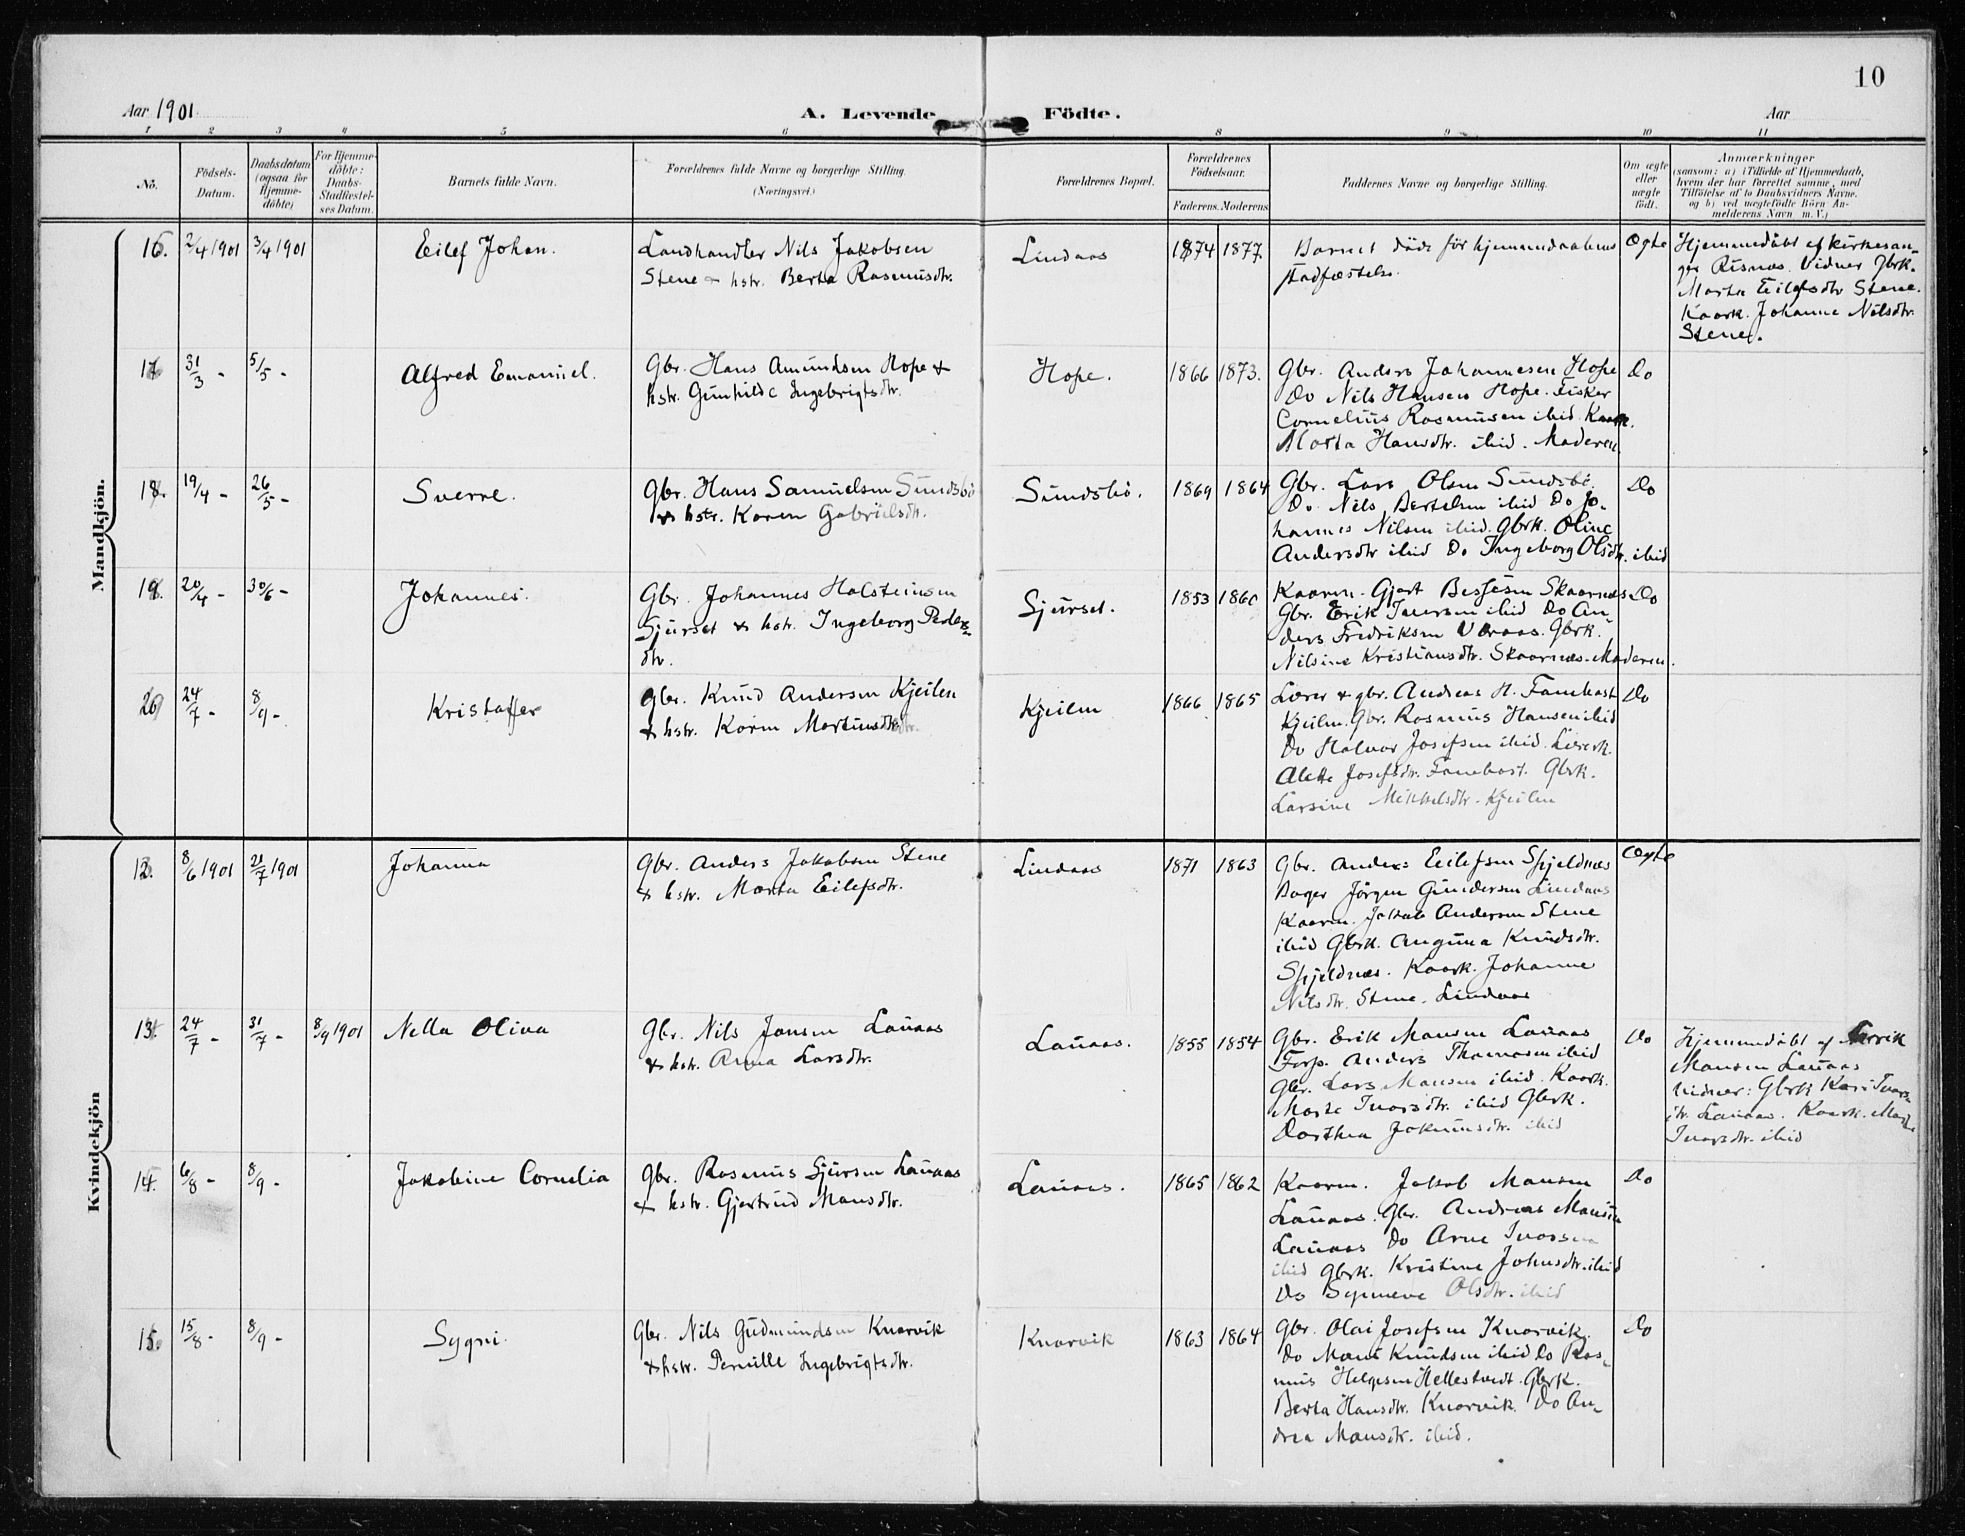 10
Aar 1901.
A. Levende Födte.
Aar
1 2 3 4 5 6 8 9 10 11
No.
Födsels-
Datum.
Daabsdatum
(ogsaa for
Hjemme-
döbte)
For Hjemme-
döbte:
Daabs-
Stadfæstel-
ses Datum.
Barnets fulde Navn.
Forældrenes fulde Navne og borgerlige Stilling.
(Næringsvei.)
Forældrenes Bopæl.
Forældrenes
Födselsaar.
Faderens. Moderens.
Faddernes Navne og borgerlige Stilling.
Om ægte
eller
uægte
födt.
Anmærkninger
(saasom: a) i Tilfælde af Hjemmedaab,
hvem der har forrettet samme, med
Tilföielse af to Daabsvidners Navne,
og b) ved uægtefödte Börn An-
melderens Navn m. V.)
Mandkjön.
16. 2/4 1901 3/4 1901
Eilef Johan.
Landhandler Nils Jakobsen
Stene & hstr. Berta Rasmusdtr.
Lindaas
1874 1877.
Barnet döde för hjemmedaabens
stadfæstelse.
Ægte
Hjemmedöbt af kirkesan-
ger Risnæs. Vidner Gbrk.
Marta Eilefsdtr Stene.
Kaark. Johanne Nilsdtr.
Stene.
17 31/3 - 5/5 -
Alfred Emanuel.
Gbr. Hans Amundsen Hope &
hstr. Gunhilde Ingebrigtsdtr.
Hope.
1866 1873.
Gbr. Anders Johannesen Hope
Do Nils Hansen Hope. Fisker
Cornelius Rasmusen ibid. Kaark.
Marta Hansdtr. ibid. Moderen
Do
18. 19/4 - 26/5 -
Sverre.
Gbr. Hans Samuelsen Sundsbö
& hstr. Karen Gabrielsdtr.
Sundsbö.
1869 1864
Gbr. Lars Olsen Sundsbö.
Do. Nils Bertelsen ibid Do Jo-
hannes Nilsen ibid. Gbrk. Oline
Andersdtr ibid Do Ingeborg Olsdtr. ibid
Do
19. 20/4 - 30/6 -
Johannes.
Gbr. Johannes Halsteinsen
Sjurset & hstr. Ingeborg Peders-
dtr.
Sjurset.
1853 1860
Kaarm. Gjert Skaarnæs
Gbr. Erik Iversen ibid Do An-
ders Fredriksen Gbrk.
Nilsine Kristiansdtr. Skaarnæs. Moderen.
Do
20 24/7 - 8/9 -
Kristoffer
Gbr. Knud Andersen Kjeilen
& hstr. Karen
Kjeilen
1866 1865
Lærer & gbr. Andreas H. Fanebost
Kjeilen. Gbr. Rasmus Hansen ibid
Do Halvor Josefsen ibid. Lærerk.
Alette Josefsdtr. Fanebost. Gbrk.
Larsine Mikkelsdtr. Kjeilen
Do
Kvindekjön
12. 8/6 1901 21/7 1901
Johanna
Gbr. Anders Jakobsen Stene
& hstr. Marta Eilefsdtr.
Lindaas
1871 1863
Gbr. Anders Eilefsen Spjeldnæs
Bager Jörgen Gundersen Lindaas
Kaarm. Jakob Andersen Stene
ibid Gbrk. Anguna Knudsdtr.
Spjeldnæs. Kaark. Johanne
Nilsdtr. Stene. Lindaas
Ægte
13. 24/7 - 31/7 - 8/9 1901
Nella Oliva
Gbr. Nils Jansen Lauaas
& hstr. Anna Larsdtr.
Lauaas.
1855 1854
Gbr. Erik Mansen Lauaas
Forp. Anders Thomasen ibid
Gbr. Lars Mansen ibid. Kaark.
Marte Ivarsdtr. ibid Gbrk.
Dorthea ibid
Do
Hjemmedöbt af
Mansen Lauaas
Vidner: Gbrk Kari Ivars-
dtr. Lauaas. Kaark. Marte
Ivarsdtr. ibid
14. 6/8 - 8/9 -
Jakobine Cornelia
Gbr. Rasmus Sjursen Lauaas
& hstr. Gjertrud Mansdtr.
Lauaas.
1865 1862
Kaarm. Jakob Mansen
Lauaas. Gbr. Andreas Mansen
Lauaas Do Arne Ivarsen
ibid Gbrk. Kristine Johnsdtr. ibid
Do Synneve Olsdtr. ibid
Do
15 15/8 - 8/9 -
Sygni.
Gbr. Nils Gudmundsen Knarvik
& hstr. Pernille Ingebrigtsdtr.
Knarvik
1863 1864
Gbr. Olai Josefsen Knarvik.
Do Mons Knudsen ibid Do Ras-
mus Helgesen Hellestvedt. Gbrk.
Berta Hansdtr. Knarvik. Do An-
drea Mansdtr. ibid.
Do